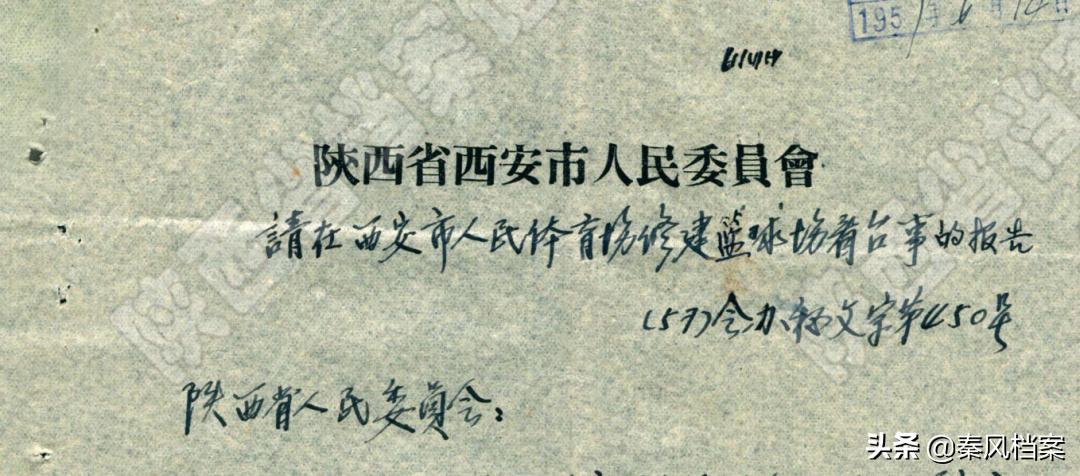 195
陝西省西安市人民委員會
請在西安市人民体育场修建篮球场看台事的报告
(57)会办 文字第450号
陕西省人民委員会：
陕西省档案
头条 @秦风档案